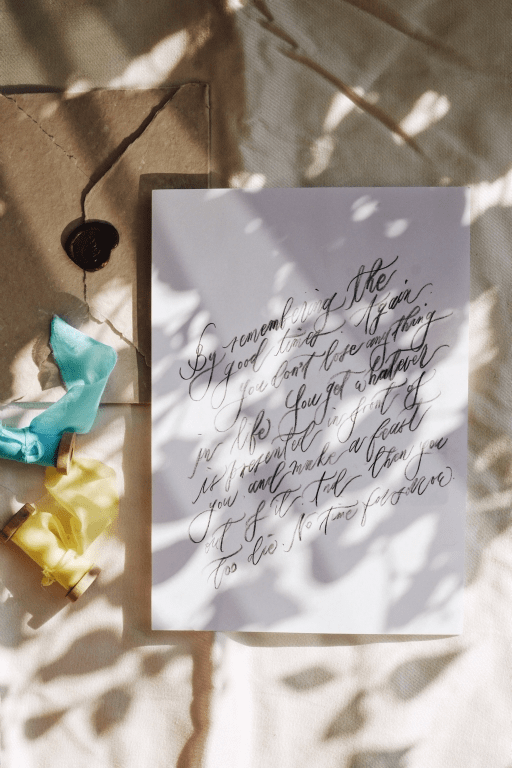 By remembering the
good times. Again.
you don't lose anything
in life you get whatever
is presented in front of
you and make a feast
out of it. And than you
Too die. No time for